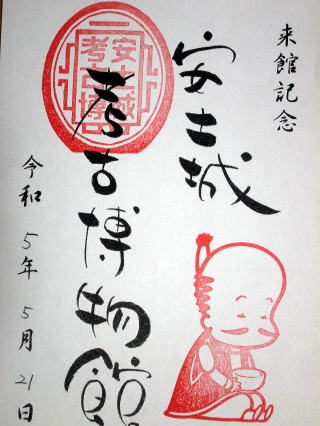 来館記念
安土城
考古博物館
令和5年5月21日
安土城
考古博